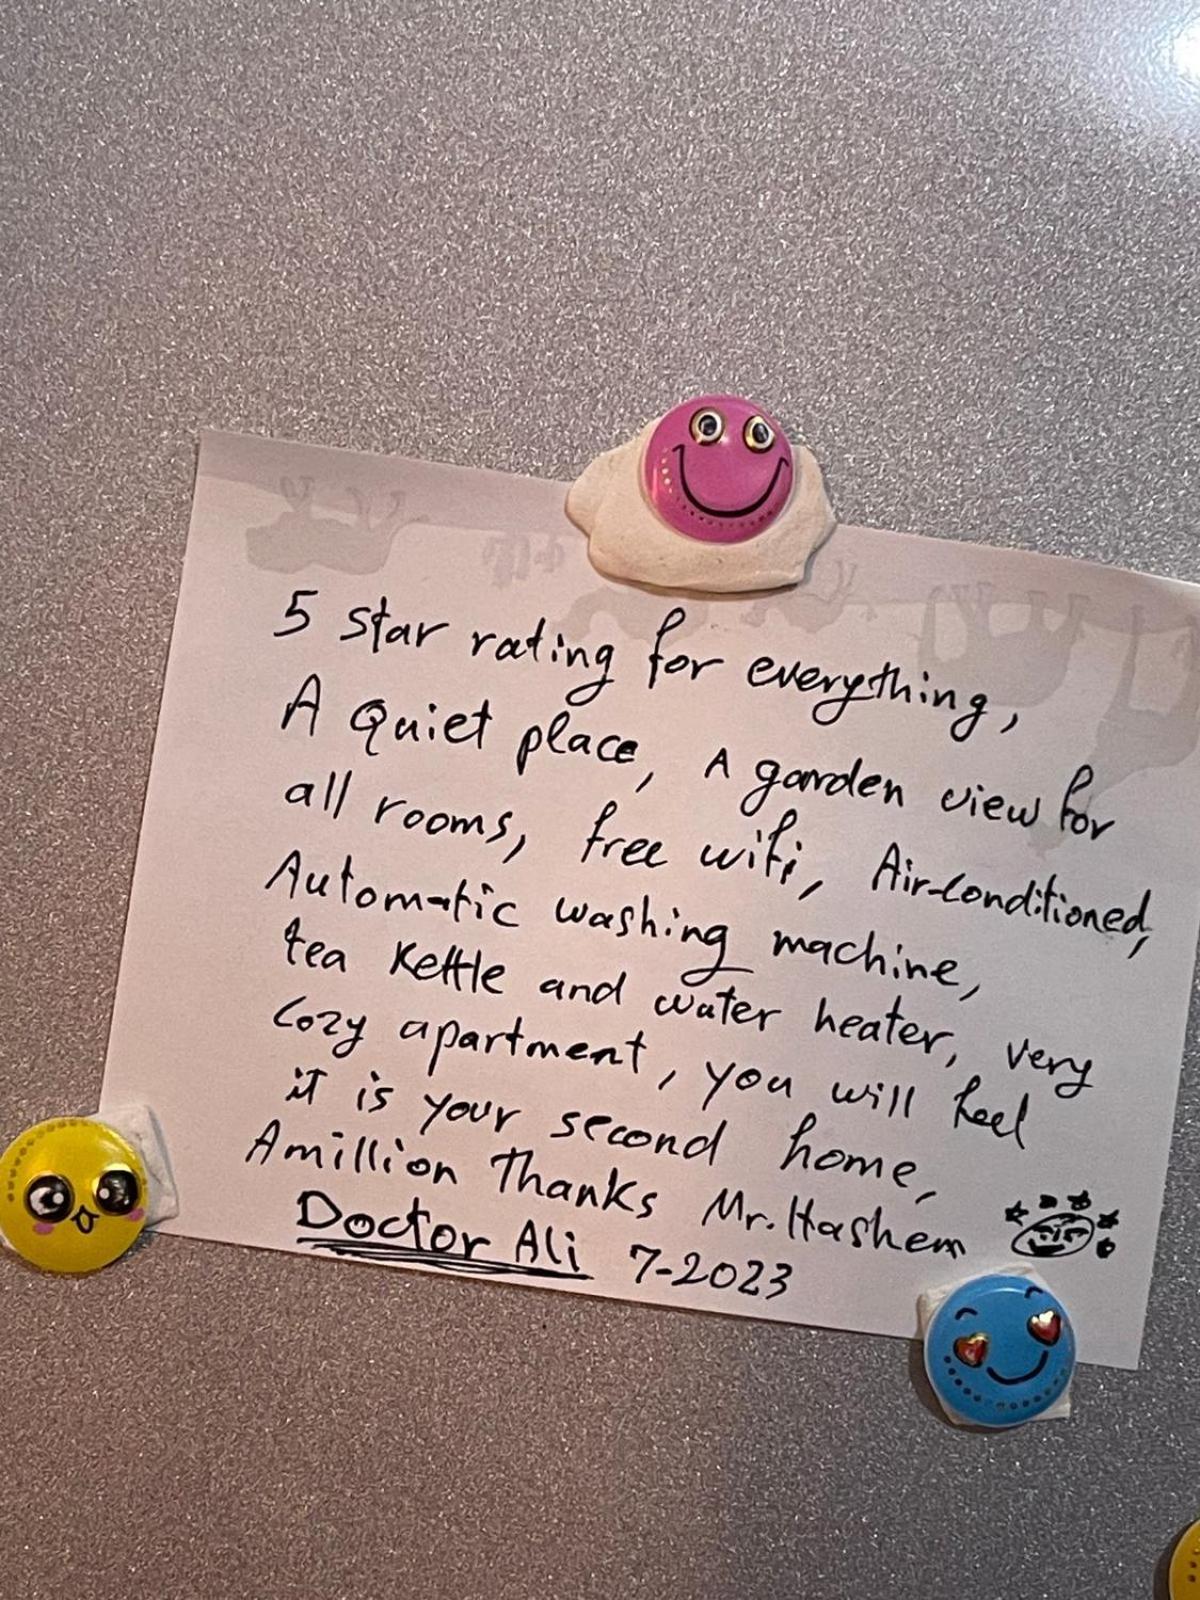 5 star rating for everything,
A Quiet place, A garden view for
all rooms, free wifi, Air-conditioned,
Automatic washing machine,
tea Kettle and water heater, very
cozy apartment, you will feel
it is your second home,
A million Thanks Mr. Hashem
Doctor Ali 7-2023